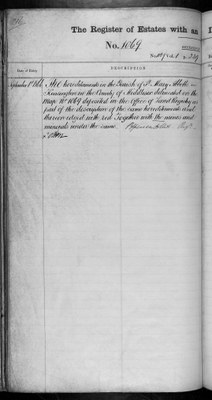 The Register of Estates with an
No. 1069
Date of Entry
DESCRIPTION
September 1st
The hereditaments in the Parish of St Mary Abbotts
Kensington in the County of Middlesex delineated on the
Map No 1069 deposited in the office of Land Registry as
part of the description of the same hereditaments and
thereon edged with red Together with the mines and
minerals under the same